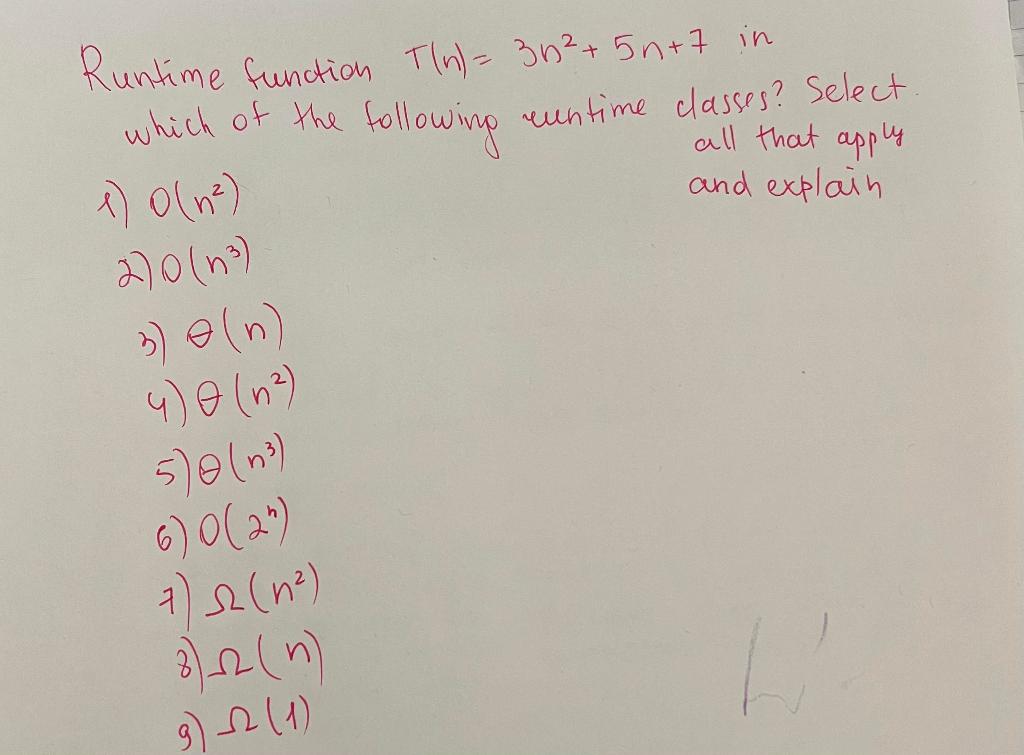 Runtime function T(n) = 3n² + 5n+7 in
which of the following runtime classes? Select
all that apply
and explain
1) O(n²)
2) O(n³)
3) θ(n)
4) θ(n²)
5) θ(n³)
6) O(2ⁿ)
7) Ω(n²)
8) Ω(n)
9) Ω(1)